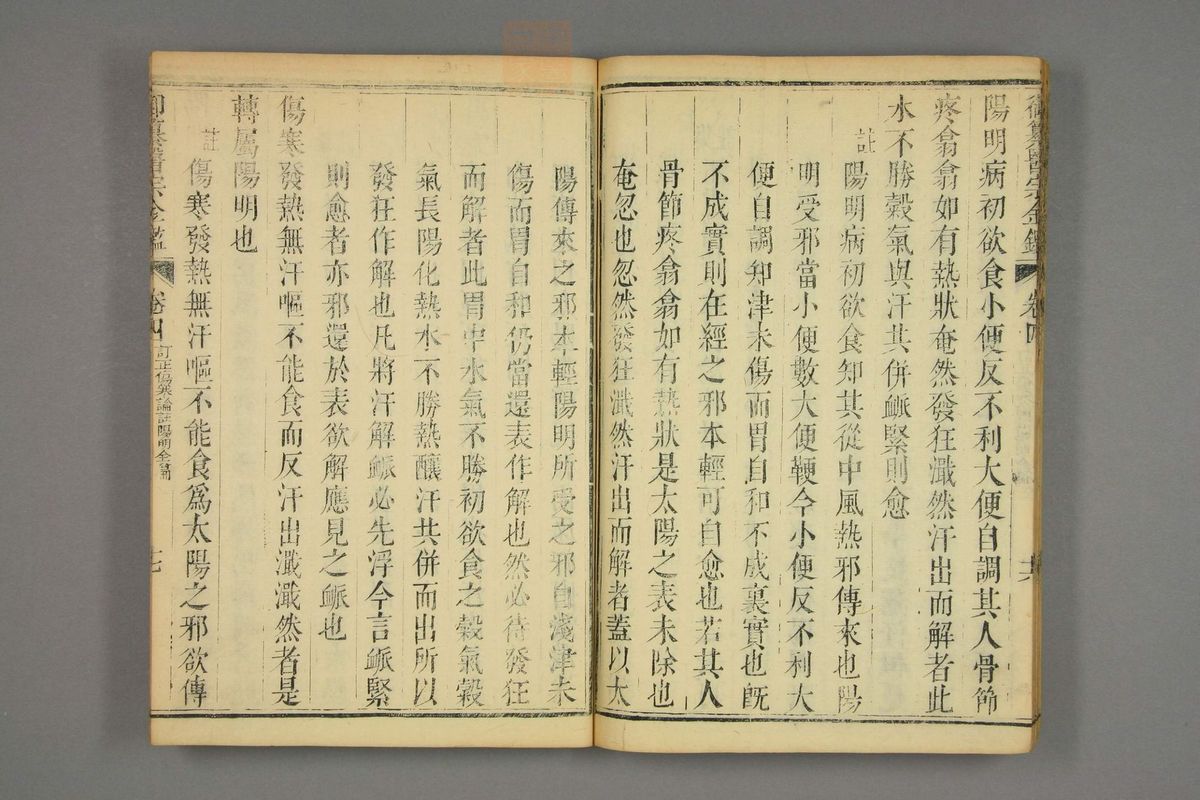 御纂醫宗金鑑 卷四 共
陽明病初欲食小便反不利大便自調其人骨節
疼翕翕如有熱狀奄然發狂濈然汗出而解者此
水不勝穀氣與汗共併脈緊則愈
註
陽明病初欲食知其從中風熱邪傳來也陽
明受邪當小便數大便鞕今小便反不利大
便自調知津未傷而胃自和不成裏實也旣
不成實則在經之邪本輕可自愈也若其人
骨節疼翕翕如有熱狀是太陽之表未除也
奄忽也忽然發狂濈然汗出而解者蓋以太
陽傳來之邪本輕陽明所受之邪自淺津未
傷而胃自和仍當還表作解也然必待發狂
而解者此胃中水氣不勝初欲食之穀氣穀
氣長陽化熱水不勝熱釀汗共併而出所以
發狂作解也凡將汗解脈必先浮今言脈緊
則愈者亦邪還於表欲解應見之脈也
傷寒發熱無汗嘔不能食而反汗出濈濈然者是
轉屬陽明也
註
傷寒發熱無汗嘔不能食爲太陽之邪欲傳
御纂醫宗金鑑 卷四 訂正傷寒論註陽明全篇 七